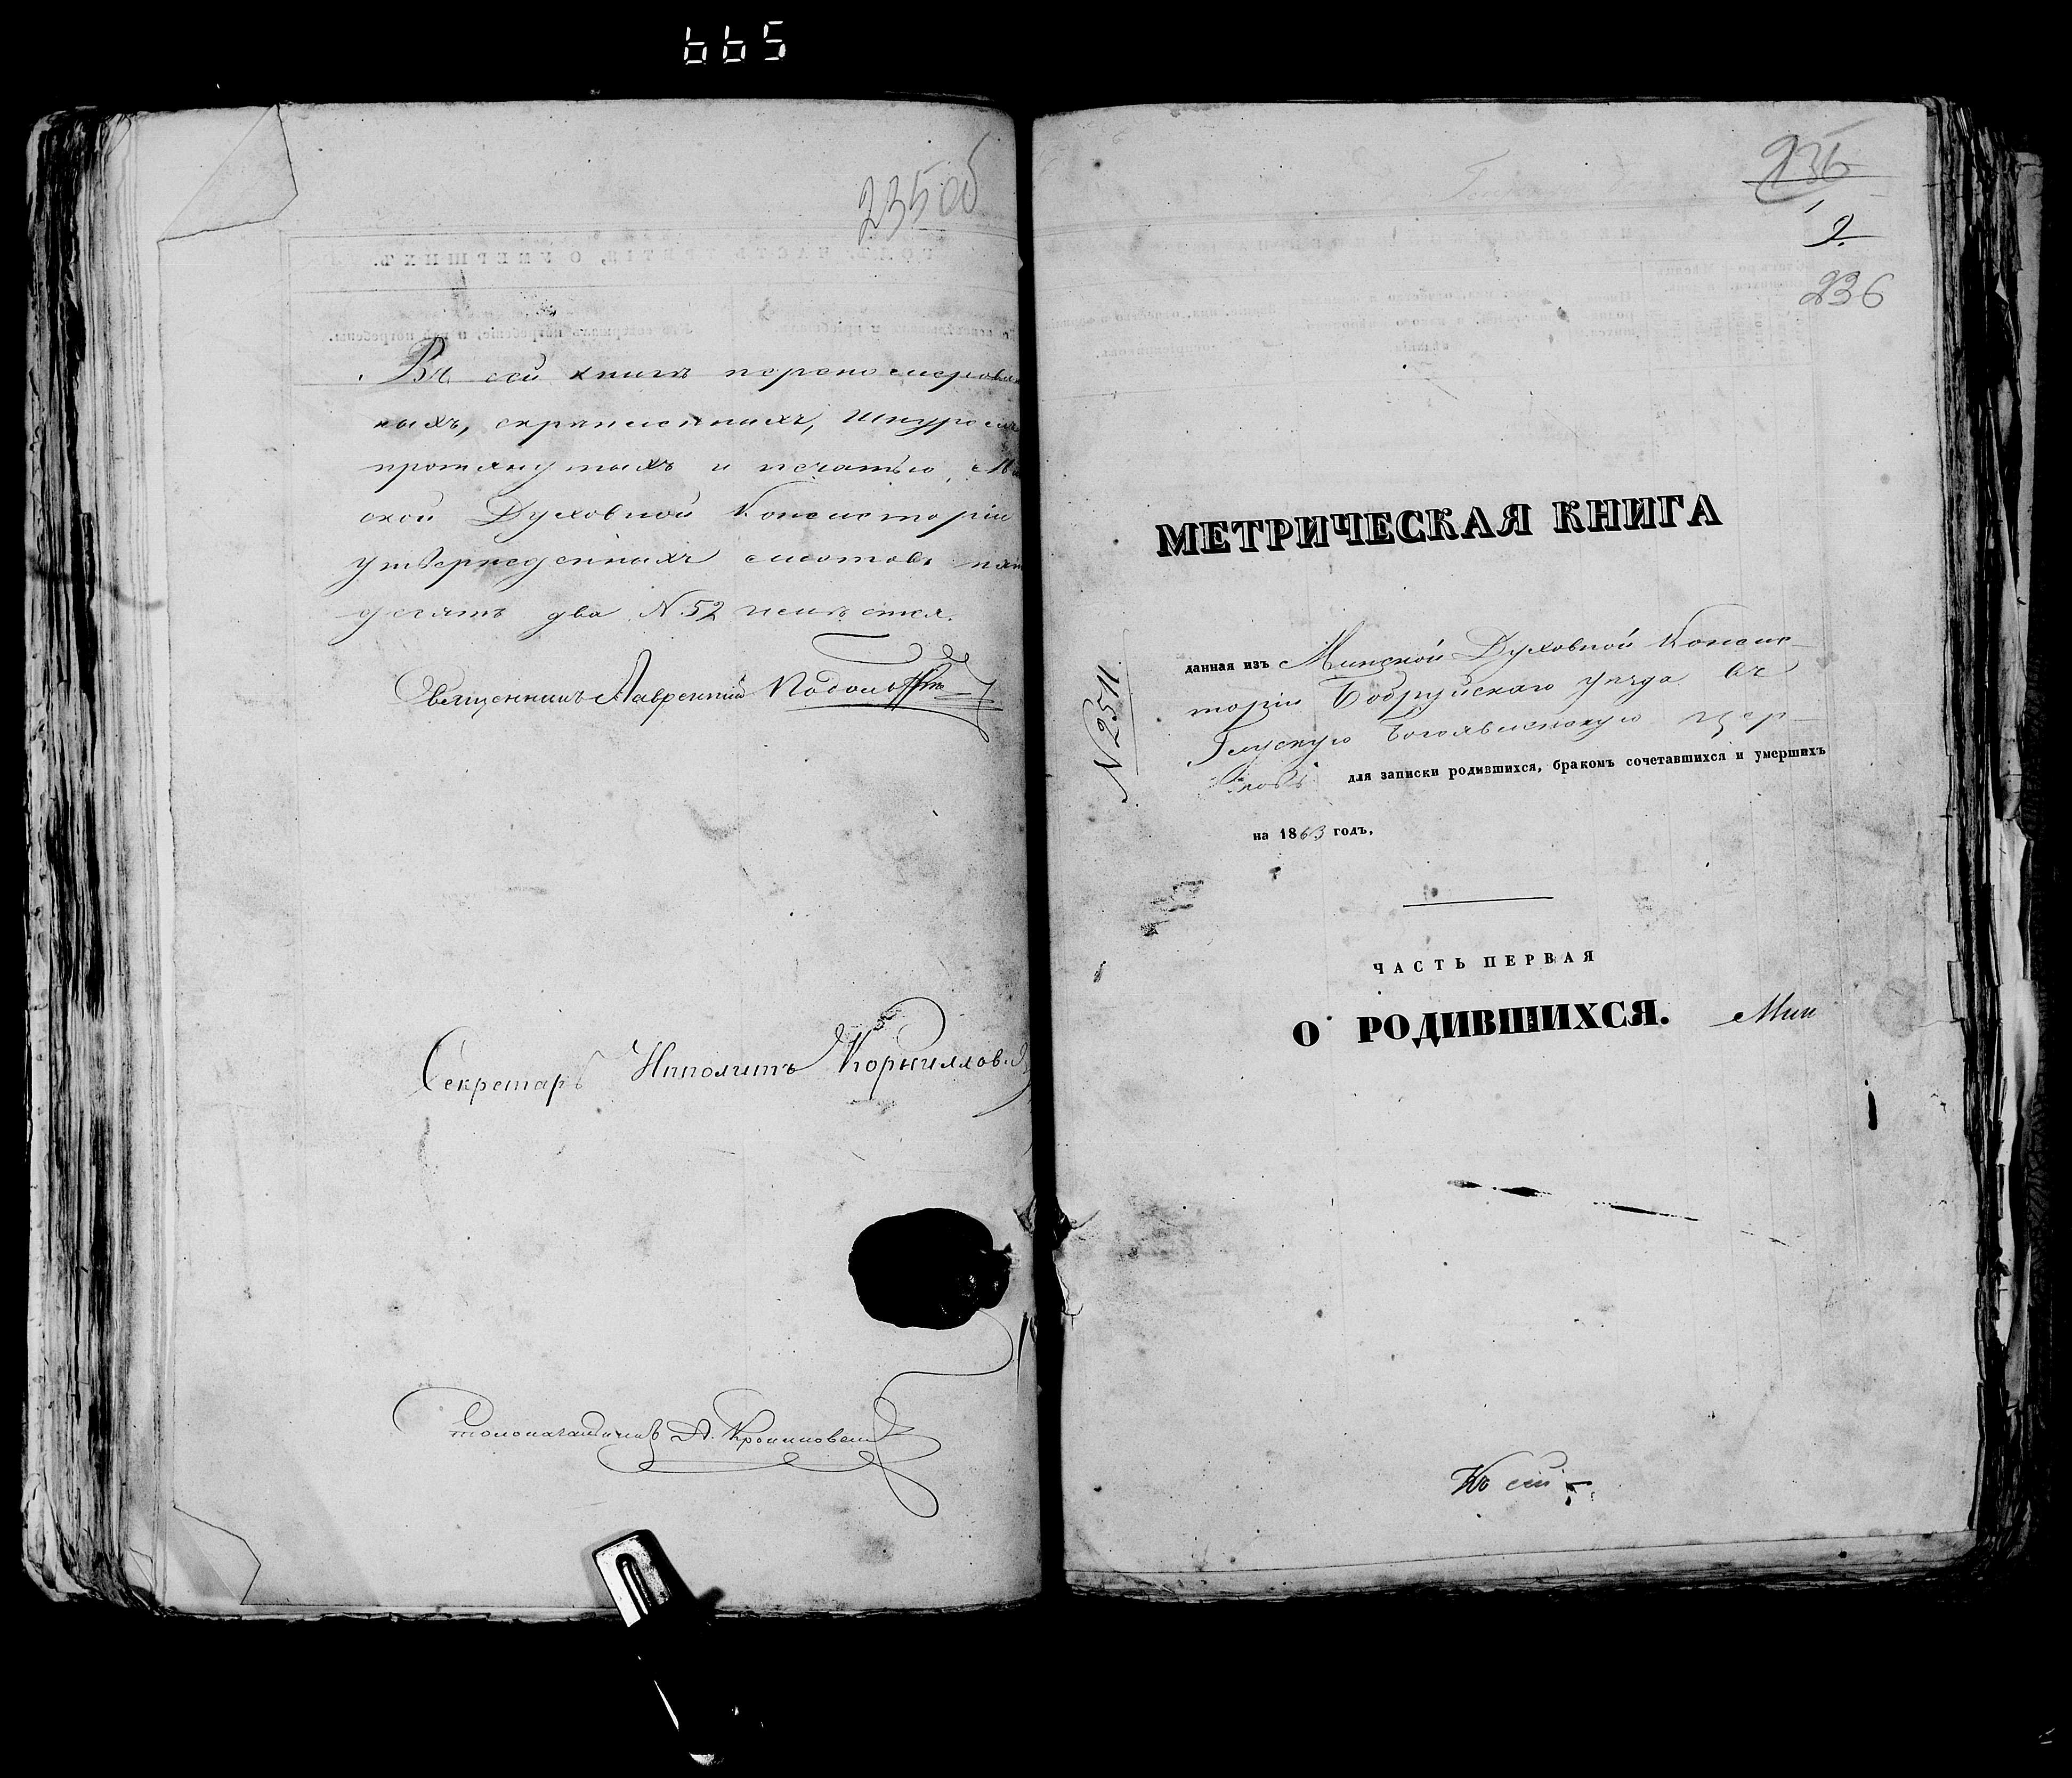 665
235 об
Въ сей книгѣ перенумерован
ныхъ, скрѣпленныхъ, шнуромъ
протянутыхъ и печатью Мин
ской Духовной Консисторіи
утвержденныхъ листовъ пять
десятъ два N 52 имѣется.
Священникъ Лаврентій
Секретарь Ипполитъ Корниллов
Столоначальникъ А.
236
2.
236
МЕТРИЧЕСКАЯ КНИГА
N 2511
данная изъ Минской Духовной Консис-
торіи Бобруйскаго уѣзда въ
Глускую Богоявленскую цер-
ковь для записки родившихся, бракомъ сочетавшихся и умершихъ
на 1863 годъ,
ЧАСТЬ ПЕРВАЯ
О РОДИВШИХСЯ. Мин
Къ сей